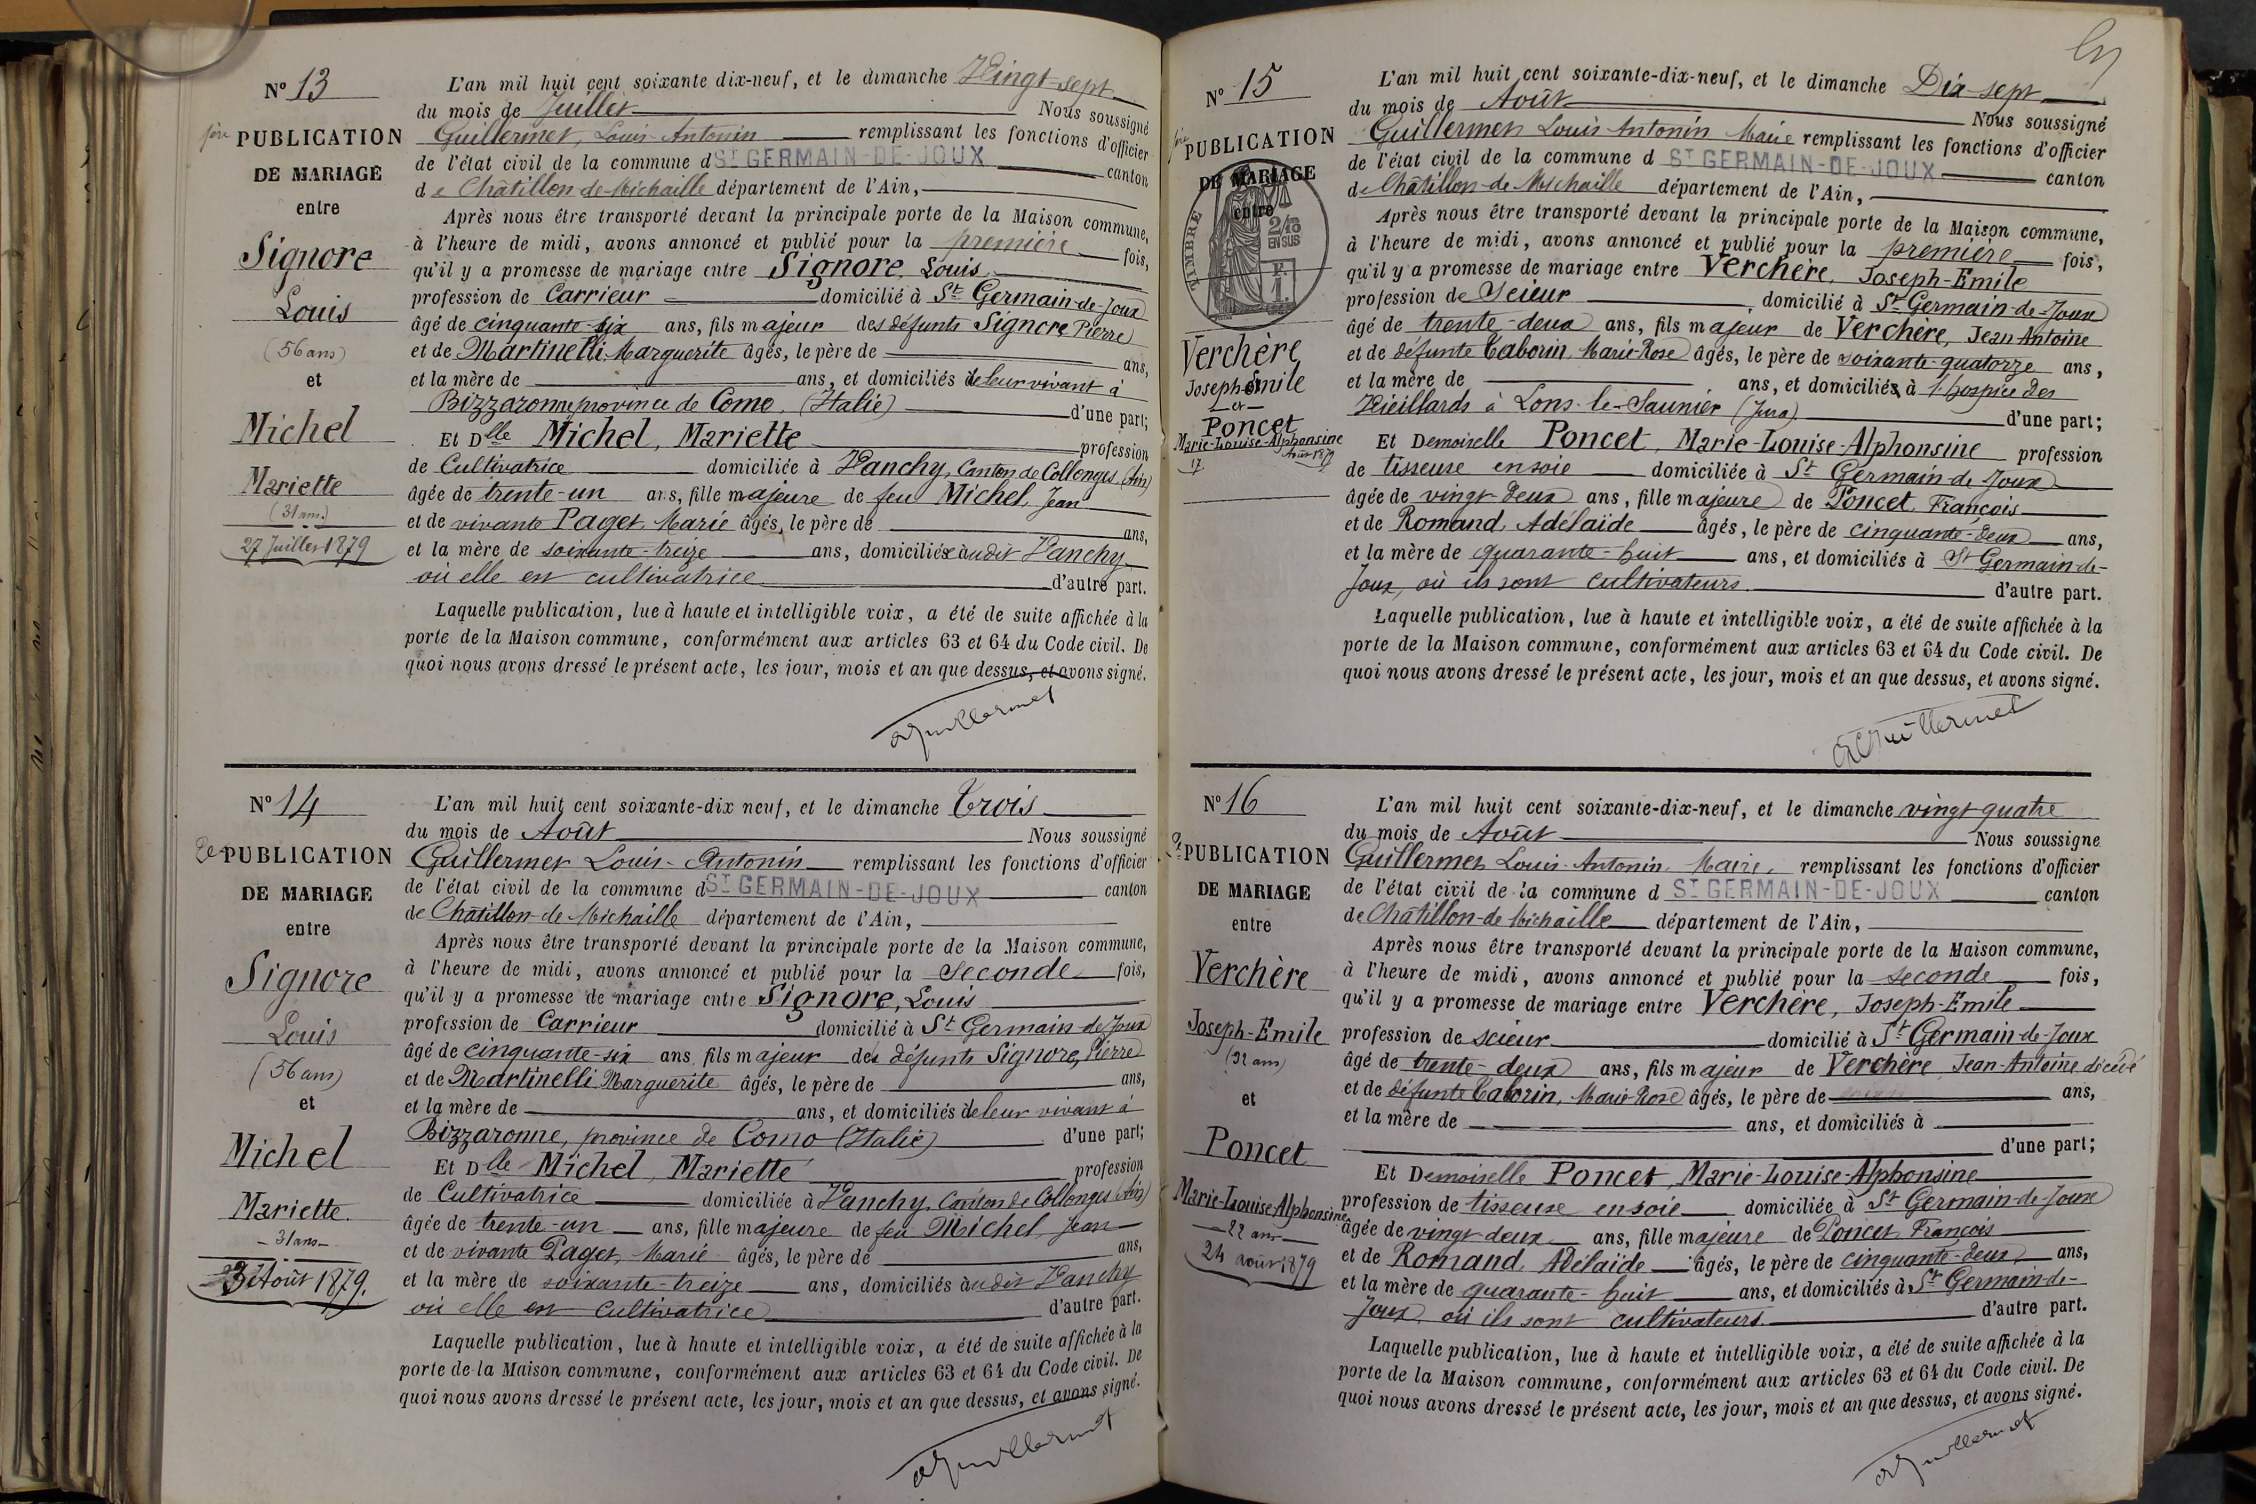 N° 13
1ère PUBLICATION
DE MARIAGE
entre
Signore
Louis
(56 ans)
et
Michel
Mariette
(31 ans)
27 Juillet 1879
L'an mil huit cent soixante dix-neuf, et le dimanche Vingt-sept
du mois de Juillet Nous soussigné
Guillermet, Louis-Antonin remplissant les fonctions d'officier
de l'état civil de la commune d ST GERMAIN-DE-JOUX canton
de Châtillon-de-Michaille département de l'Ain,
Après nous être transporté devant la principale porte de la Maison commune,
à l'heure de midi, avons annoncé et publié pour la première fois,
qu'il y a promesse de mariage entre Signore, Louis
profession de Carrieur domicilié à St Germain-de-Joux
âgé de cinquante-six ans, fils majeur des défunts Signore, Pierre
et de Martinelli, Marguerite âgés, le père de ans,
et la mère de ans, et domiciliés de leur vivant à
Bizzaronne province de Como, (Italie) d'une part;
Et Dlle Michel, Mariette profession
de Cultivatrice domiciliée à Vanchy, Canton de Collonges (Ain)
âgée de trente-un ans, fille majeure de feu Michel, Jean
et de vivante Paget, Marie âgés, le père de ans,
et la mère de soixante-treize ans, domiciliée audit Vanchy
où elle est cultivatrice d'autre part.
Laquelle publication, lue à haute et intelligible voix, a été de suite affichée à la
porte de la Maison commune, conformément aux articles 63 et 64 du Code civil. De
quoi nous avons dressé le présent acte, les jour, mois et an que dessus, et avons signé.
Guillermet
N° 14
2e PUBLICATION
DE MARIAGE
entre
Signore
Louis
(56 ans)
et
Michel
Mariette
- 31 ans -
3 Août 1879.
L'an mil huit cent soixante-dix neuf, et le dimanche Trois
du mois de Août Nous soussigné
Guillermet Louis-Antonin remplissant les fonctions d'officier
de l'état civil de la commune d ST GERMAIN-DE-JOUX canton
de Châtillon-de-Michaille département de l'Ain,
Après nous être transporté devant la principale porte de la Maison commune,
à l'heure de midi, avons annoncé et publié pour la seconde fois,
qu'il y a promesse de mariage entre Signore, Louis
profession de Carrieur domicilié à St Germain-de-Joux
âgé de cinquante-six ans, fils majeur des défunts Signore, Pierre
et de Martinelli Marguerite âgés, le père de ans,
et la mère de ans, et domiciliés de leur vivant à
Bizzaronne, province de Como (Italie) d'une part;
Et Dlle Michel, Mariette profession
de Cultivatrice domiciliée à Vanchy, Canton de Collonges (Ain)
âgée de trente-un ans, fille majeure de feu Michel, Jean
et de vivante Paget, Marie âgés, le père de ans,
et la mère de soixante-treize ans, domiciliés audit Vanchy
où elle est cultivatrice d'autre part.
Laquelle publication, lue à haute et intelligible voix, a été de suite affichée à la
porte de la Maison commune, conformément aux articles 63 et 64 du Code civil. De
quoi nous avons dressé le présent acte, les jour, mois et an que dessus, et avons signé.
Guillermet
N° 15
1ère PUBLICATION
DE MARIAGE
entre
TIMBRE
2/10
EN SUS
Verchère
Joseph-Emile
et
Poncet
Marie-Louise-Alphonsine
17 Août 1879
L'an mil huit cent soixante-dix-neuf, et le dimanche Dix-sept
du mois de Août Nous soussigné
Guillermet Louis-Antonin Maire remplissant les fonctions d'officier
de l'état civil de la commune d ST GERMAIN-DE-JOUX canton
de Châtillon-de-Michaille département de l'Ain,
Après nous être transporté devant la principale porte de la Maison commune,
à l'heure de midi, avons annoncé et publié pour la première fois,
qu'il y a promesse de mariage entre Verchère, Joseph-Emile
profession de Scieur domicilié à St Germain-de-Joux
âgé de trente-deux ans, fils majeur de Verchère, Jean-Antoine
et de défunte Caborin, Marie-Rose âgés, le père de soixante-quatorze ans,
et la mère de ans, et domiciliés à l'hospice des
Vieillards à Lons-le-Saunier (Jura) d'une part;
Et Demoiselle Poncet, Marie-Louise-Alphonsine profession
de tisseuse en soie domiciliée à St Germain-de-Joux
âgée de vingt-deux ans, fille majeure de Poncet, François
et de Romand, Adélaïde âgés, le père de cinquante-deux ans,
et la mère de quarante-huit ans, et domiciliés à St Germain-de-
Joux, où ils sont cultivateurs. d'autre part.
Laquelle publication, lue à haute et intelligible voix, a été de suite affichée à la
porte de la Maison commune, conformément aux articles 63 et 64 du Code civil. De
quoi nous avons dressé le présent acte, les jour, mois et an que dessus, et avons signé.
Guillermet
N° 16
2e PUBLICATION
DE MARIAGE
entre
Verchère
Joseph-Emile
(32 ans)
et
Poncet
Marie-Louise Alphonsine
- 22 ans -
24 août 1879
L'an mil huit cent soixante-dix-neuf, et le dimanche vingt quatre
du mois de Août Nous soussigné
Guillermet Louis-Antonin, Maire, remplissant les fonctions d'officier
de l'état civil de la commune d ST GERMAIN-DE-JOUX canton
de Châtillon-de-Michaille département de l'Ain,
Après nous être transporté devant la principale porte de la Maison commune,
à l'heure de midi, avons annoncé et publié pour la seconde fois,
qu'il y a promesse de mariage entre Verchère, Joseph-Emile
profession de scieur domicilié à St Germain-de-Joux
âgé de trente-deux ans, fils majeur de Verchère, Jean-Antoine décédé
et de défunte Caborin, Marie-Rose âgés, le père de ans,
et la mère de ans, et domiciliés à
d'une part;
Et Demoiselle Poncet, Marie-Louise-Alphonsine
profession de tisseuse en soie domiciliée à St Germain-de-Joux
âgée de vingt-deux ans, fille majeure de Poncet, François
et de Romand, Adélaïde âgés, le père de cinquante-deux ans,
et la mère de quarante-huit ans, et domiciliés à St Germain-de-
Joux, où ils sont cultivateurs d'autre part.
Laquelle publication, lue à haute et intelligible voix, a été de suite affichée à la
porte de la Maison commune, conformément aux articles 63 et 64 du Code civil. De
quoi nous avons dressé le présent acte, les jour, mois et an que dessus, et avons signé.
Guillermet